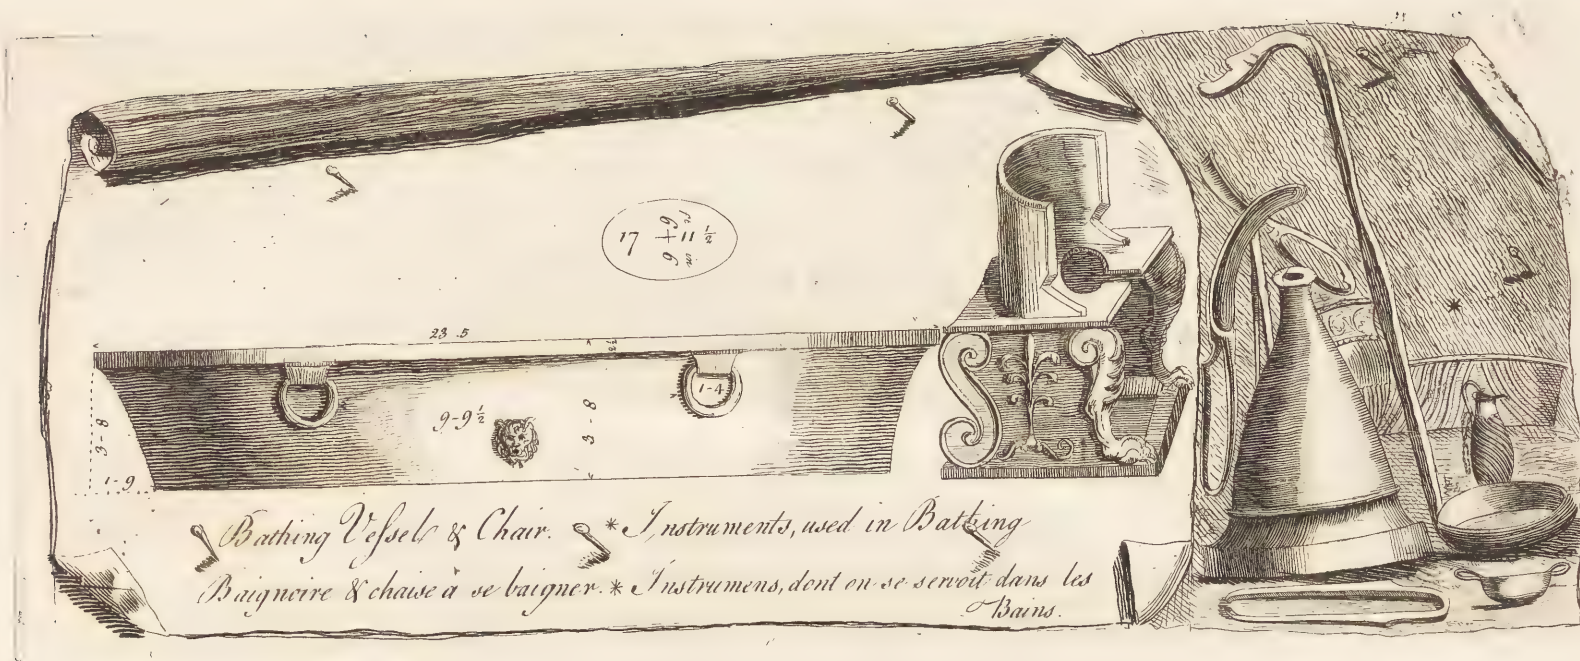 17 + 11 ½
9 9
23 . 5
3 - 8
1 - 9
9 - 9 ½
3 - 8
1 - 4
Bathing Veſsel & Chair. * Instruments, used in Bathing
Baignoire & chaise à se baigner. * Instrumens, dont on se servoit dans les
Bains.
*